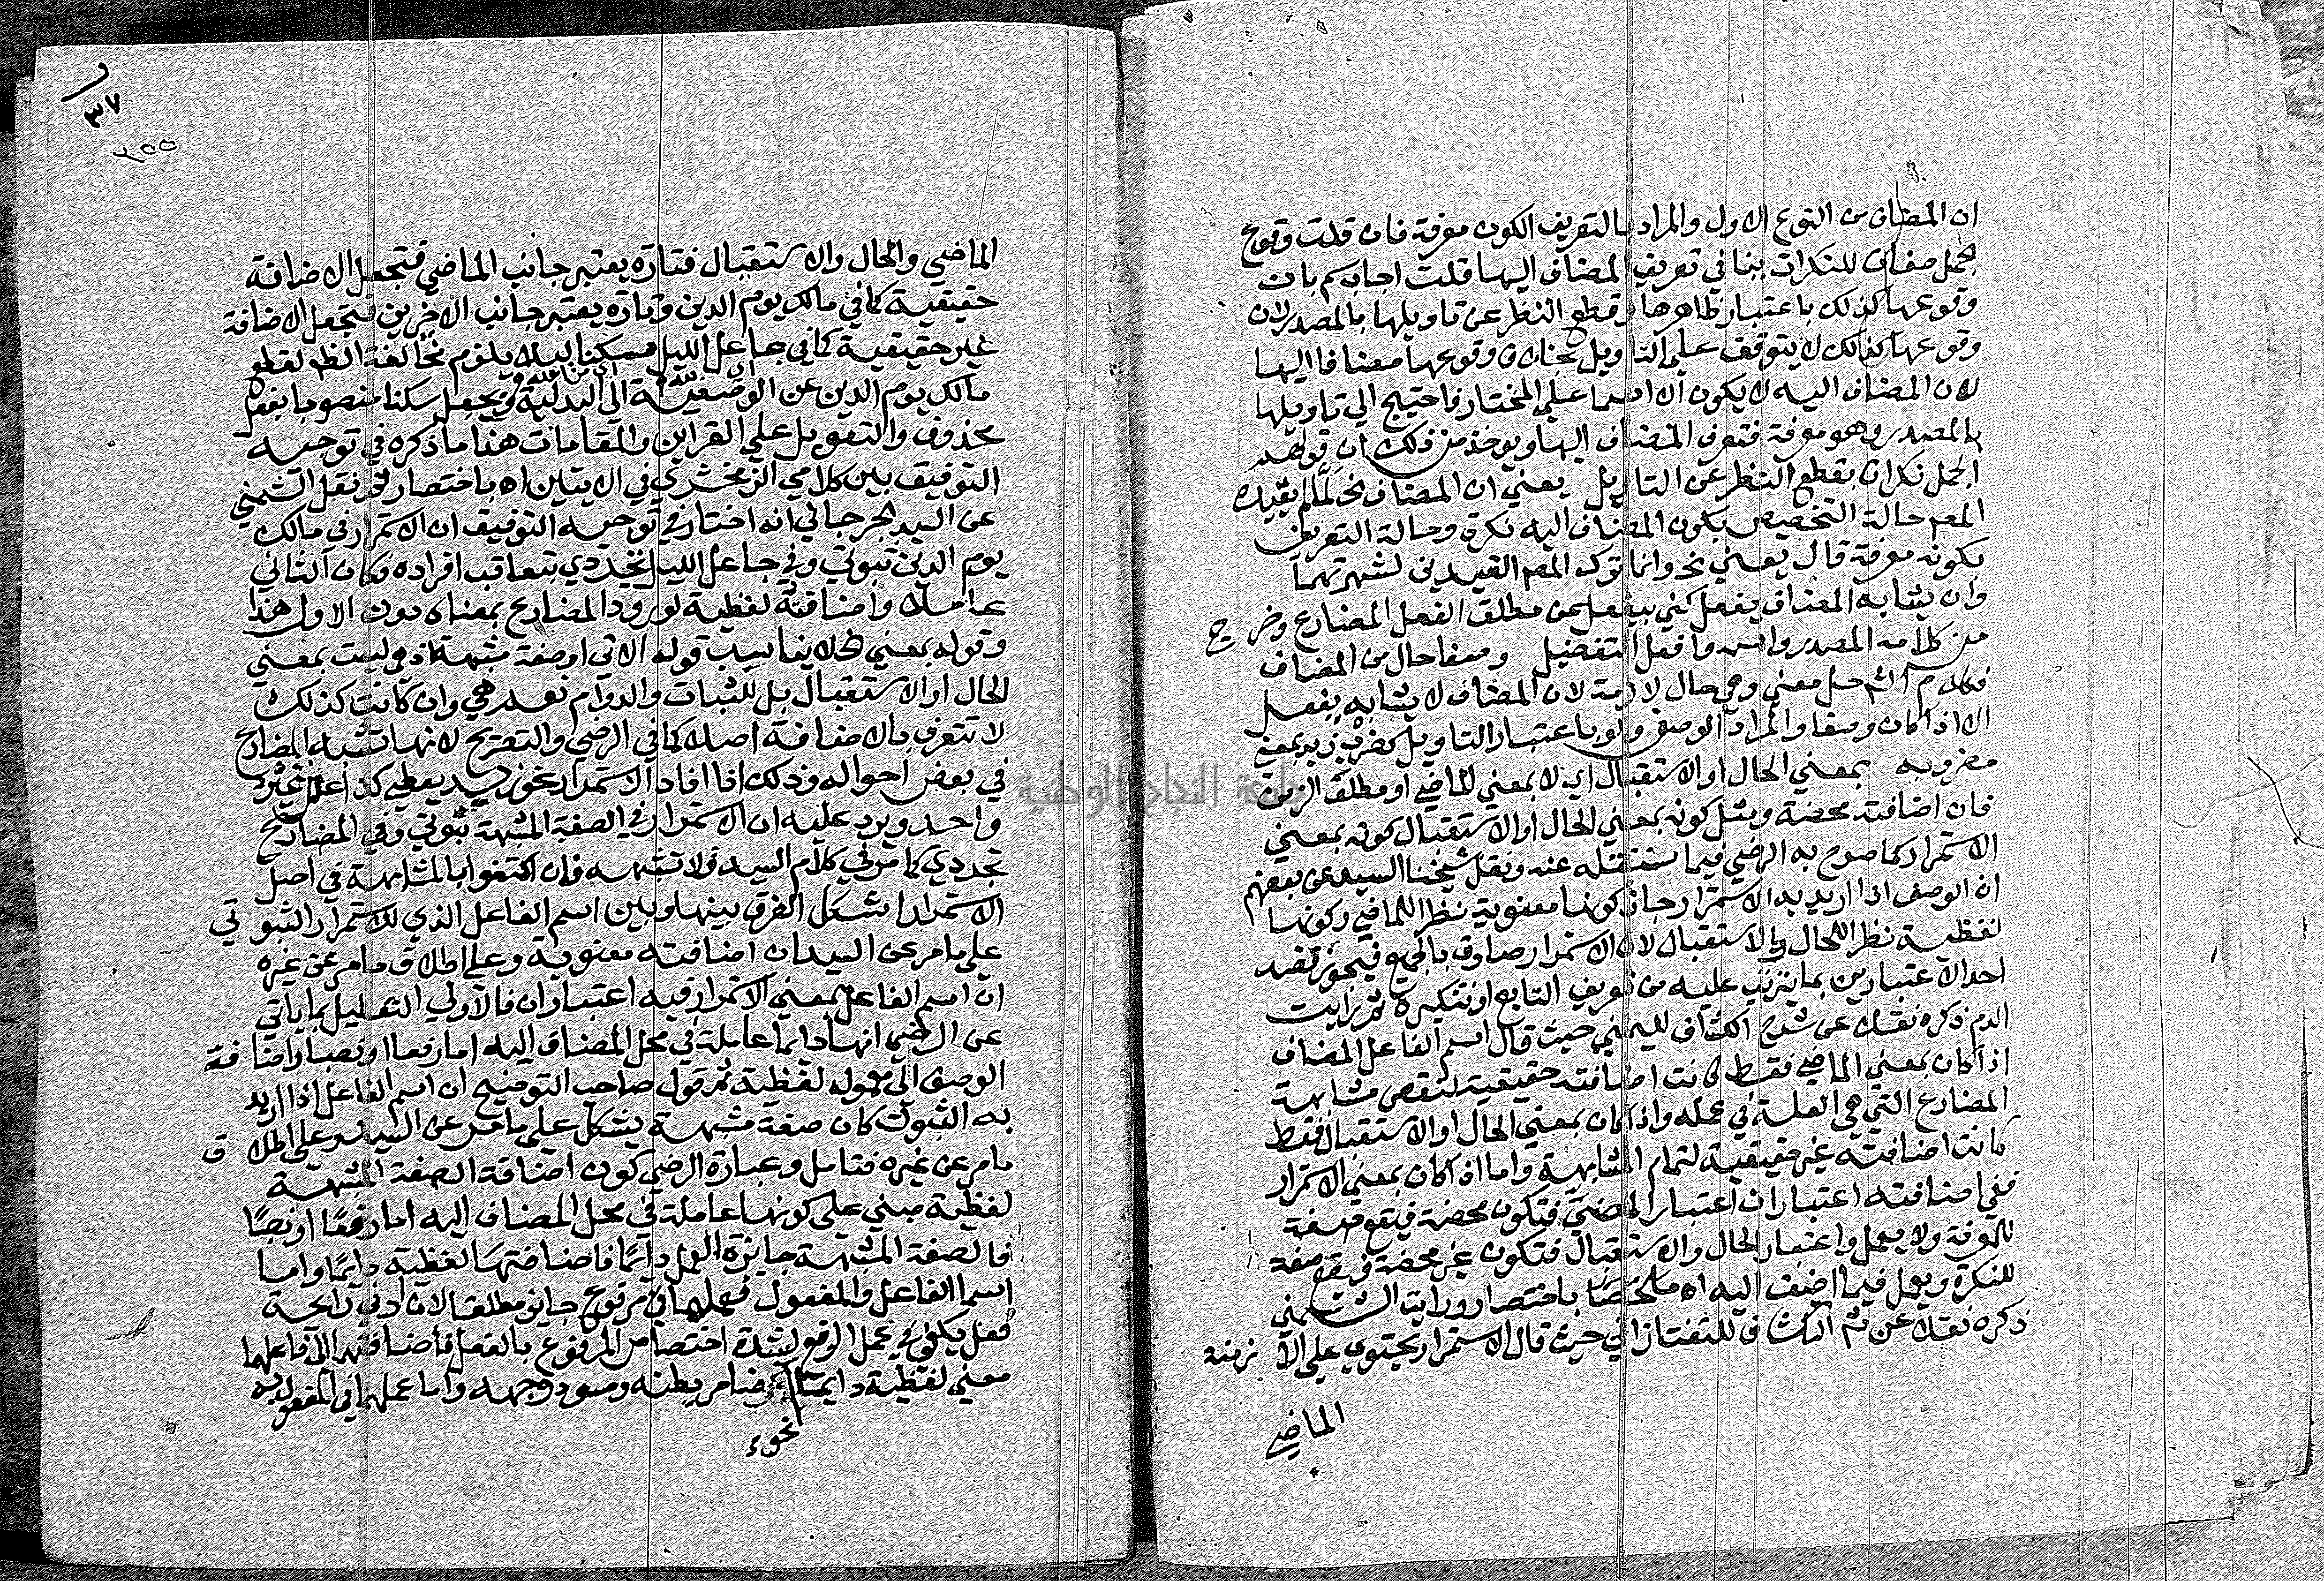 ان المضاف من النوع الاول والمراد بالتعريف الكون معرفة فان قلت وقوع
الجمل صفات للنكرات ينافي تعريف المضاف اليها قلت اجاب سم بان
وقوعها كذلك باعتبار ظاهرها وقطع النظر عن تاويلها بالمصدر لان
وقوعها كذلك لا يتوقف علي التاويل بخلاف وقوعها مضافا اليها
لان المضاف اليه لا يكون الا اسما علي المختار فاحتيج الي تاويلها
بالمصدر وهو معرفة فتعرف المضاف اليها ويوخذ من ذلك ان قولهم
الجمل نكرات بقطع النظر عن التاويل يعني ان المضاف الخ لم يقيد
المص حالة التخصيص بكون المضاف اليه نكرة وحالة التعريف
بكونه معرفة قال يعني الخ وانما ترك المص القيدين لشهرتهما
وان يشابه المضاف يفعل كني بيفعل عن مطلق الفعل المضارع وخرج
من كلامه المصدر واسم وافعل التفضيل وصفا حال من المضاف
فكلام الش حل معني وهي حال لازمة لان المضاف لا يشابه يفعل
الا اذا كان وصفا والمراد الوصف ولو باعتبار التاويل كضرب زيد بمعني
مضروبه بمعني الحال او الاستقبال اي لا بمعني الماضي او مطلق الزمن
فان اضافته محضة ومثل كونه بمعني الحال او الاستقبال كونه بمعني
الاستمرار كما صرح به الرضي فيما سننقله عنه ونقل شيخنا السيد عن بعضهم
ان الوصف اذا اريد به الاستمرار جاز كونها معنوية نظرا للماضي وكونها
لفظية نظرا للحال والاستقبال لان الاستمرار صادق بالجميع فيجوز قصد
احد الاعتبارين بما يترتب عليه من تعريف التابع او تنكيره ثم رايت
الدم ذكره نقلا عن شرح الكشاف لليمني حيث قال اسم الفاعل المضاف
اذا كان بمعني الماضي فقط كانت اضافته حقيقية لنقص مشابهة
المضارع التي هي العلة في عمله واذا كان بمعني الحال او الاستقبال فقط
كانت اضافته غير حقيقية لتمام المشابهة واما اذا كان بمعني الاستمرار
ففي اضافته اعتباران اعتبار المضي فتكون محضة فيقع صفة
للمعرفة ولا يعمل واعتبار الحال والاستقبال فتكون غير محضة فيقع صفة
للنكرة ويعمل فيما اضيف اليه اه ملخصا باختصار ورايت الشمني
ذكره نقلا عن ش الكشاف للتفتازاني حيث قال الاستمرار يحتوي علي الازمنة
الماضي
٣٧
٢٥٥
الماضي والحال والاستقبال فتارة يعتبر جانب الماضي فتجعل الاضافة
حقيقية كما في مالك يوم الدين وتارة يعتبر جانب الاخرين فتجعل الاضافة
غير حقيقية كما في جاعل الليل سكنا ليلا يلزم مخالفة الظ لقطع
مالك يوم الدين عن الوصفية الي البدلية ويجعل سكنا منصوبا بفعل
محذوف والتعويل علي القراين والمقامات هذا ما ذكره في توجيه
التوفيق بين كلامي الزمخشري في الايتين اه باختصار ثم نقل الشمني
عن السيد الجرجاني انه اختار في توجيه التوفيق ان الاستمرار في مالك
يوم الدين ثبوتي وفي جاعل الليل تجددي بتعاقب افراده فكان الثاني
عاملا واضافته لفظية لورود المضارع بمعناه دون الاول هذا
وقوله بمعني الخ لا يناسب قوله الاتي او صفة مشبهة اذ هي ليست بمعني
الحال او الاستقبال بل للثبات والدوام نعم هي وان كانت كذلك
لا تتعرف بالاضافة اصلا كما في الرضي والتصريح لانها تشبه المضارع
في بعض احواله وذلك اذا افاد الاستمرار نحو زيد يعطي كذا اعلم غير
واحد ويرد عليه ان الاستمرار في الصفة المشبهة ثبوتي وفي المضارع
تجددي كما مر في كلام السيد فلا تشبهه فان اكتفوا بالمشابهة في اصل
الاستمرار اشكل الفرق بينها وبين اسم الفاعل الذي للاستمرار الثبوتي
علي ما مر عن السيد ان اضافته معنوية وعلي اطلاق ما مر عن غيره
ان اسم الفاعل بمعني الاستمرار فيه اعتباران فالاولي التعليل بما ياتي
عن الرضي انها دايما عاملة في محل المضاف اليه اما رفعا او نصبا واضافة
الوصف الي معموله لفظية ثم قول صاحب التوضيح ان اسم الفاعل اذا اريد
به الثبوت كان صفة مشبهة يشكل علي ما مر عن السيد وعلي اطلاق
ما مر عن غيره فتامل وعبارة الرضي كون اضافة الصفة المشبهة
لفظية مبني علي كونها عاملة في محل المضاف اليه اما رفعا او نصبا
فالصفة المشبهة جايزة العمل دايما فاضافتها لفظية دايما واما
اسما الفاعل والمفعول فعملهما في مرفوع جايز مطلقا لان ادني رايحة
فعل يكفي في عمل الرفع لشدة اختصاص المرفوع بالفعل فاضافتهما الي فاعلهما
معني لفظية دايما كضامر بطنه ومسود وجهه واما عملهما في المفعول به
نحوء